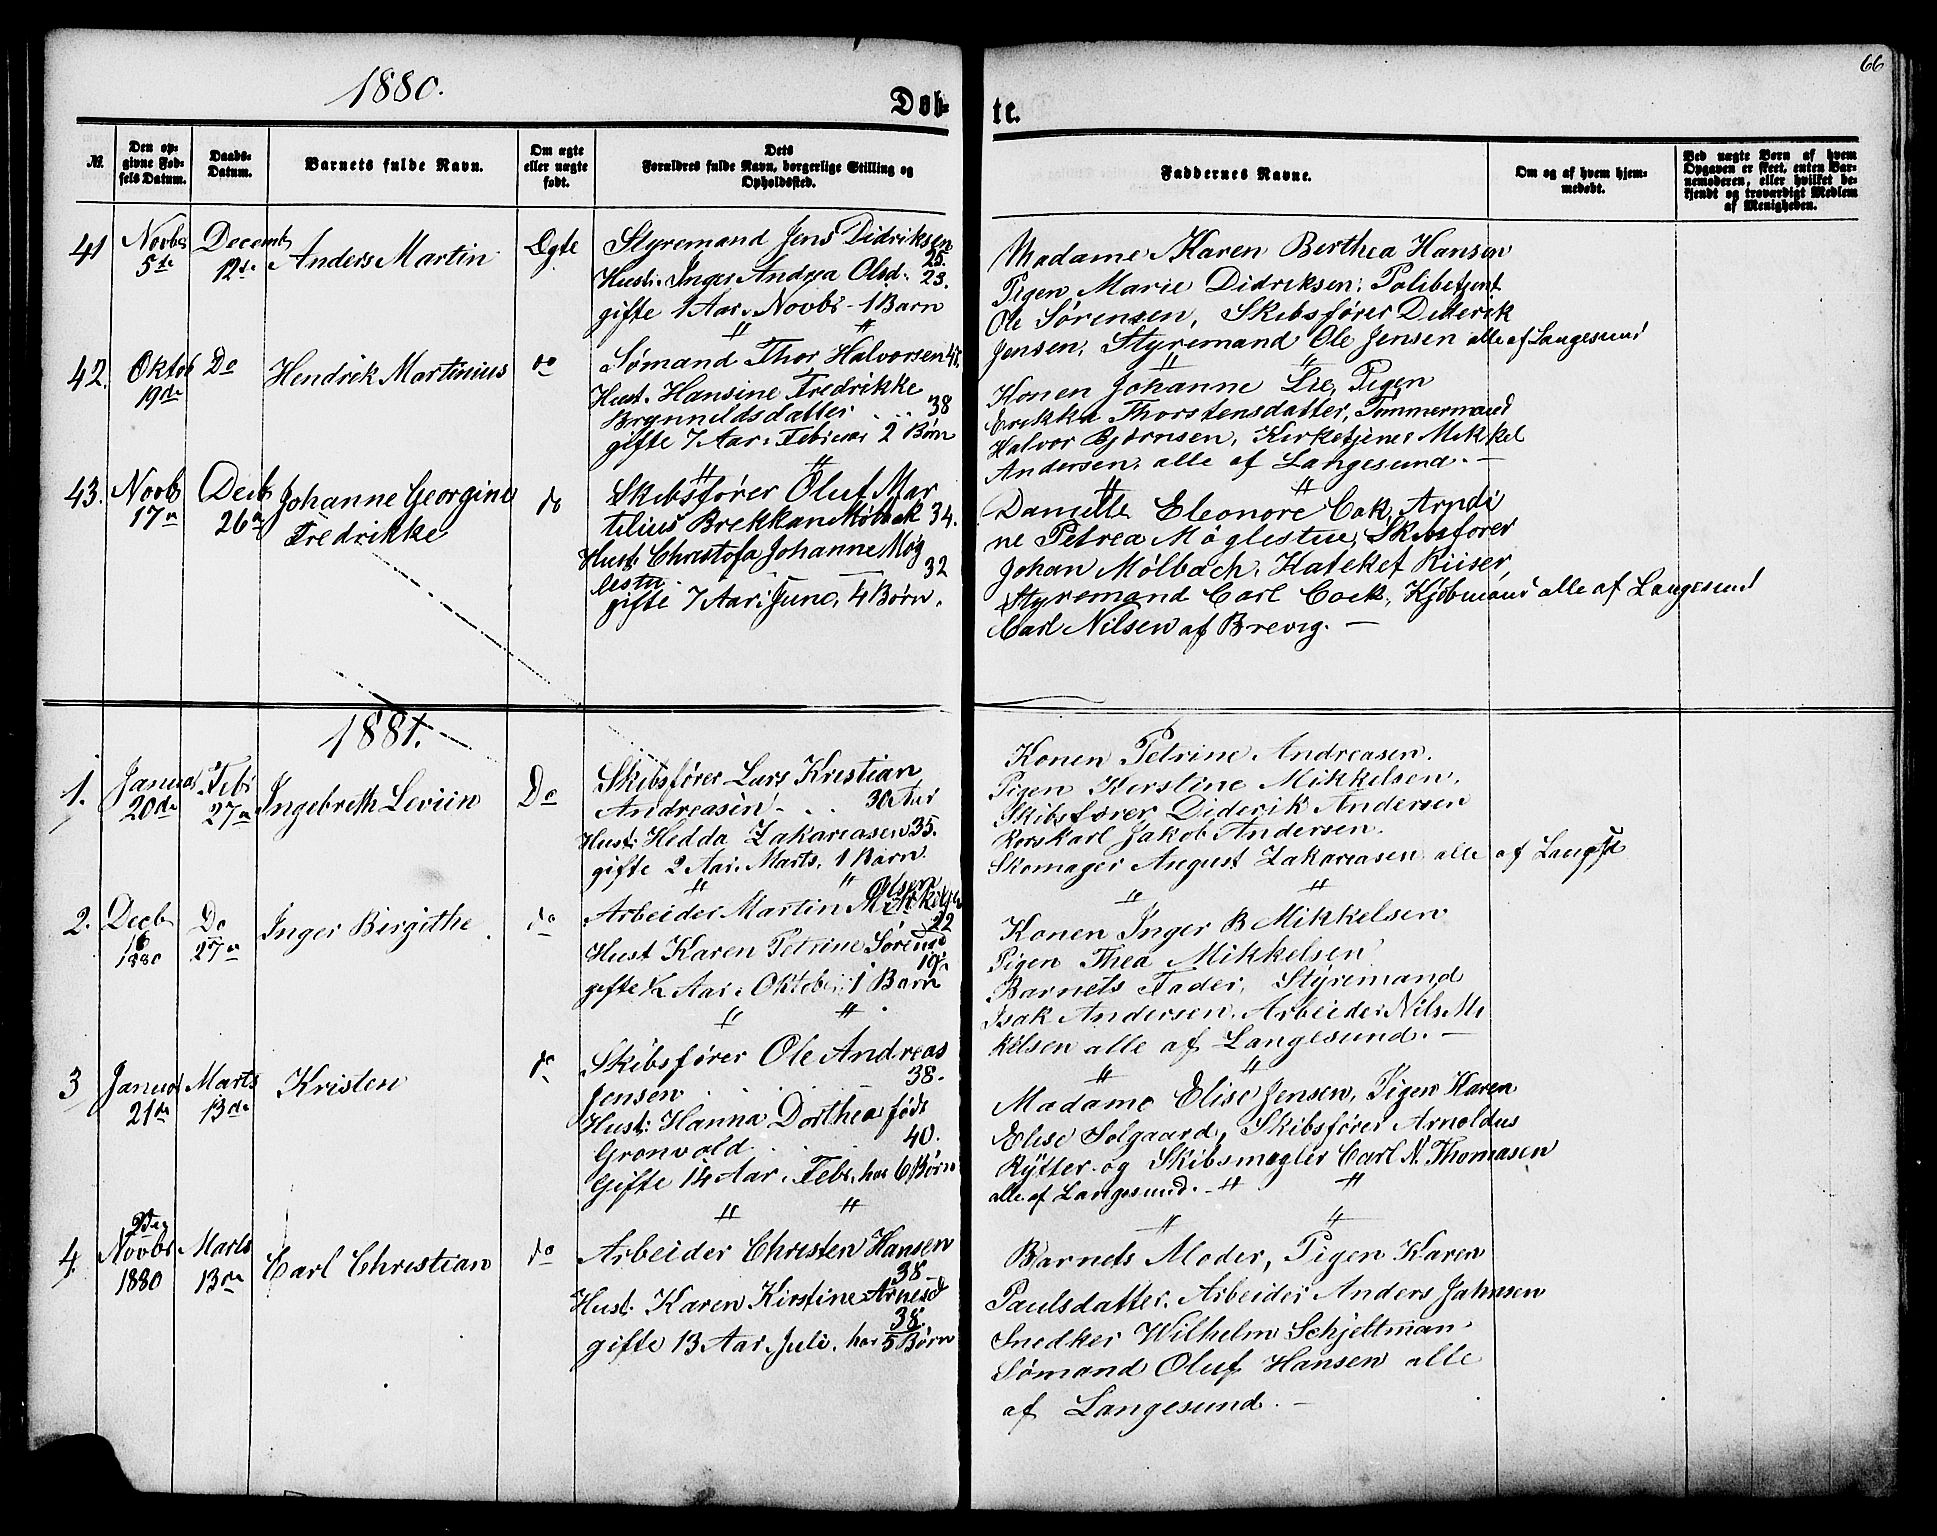 66
1880.
Døb-
te.
№.
Den op-
givne Fød-
sels Datum.
Daabs-
Datum.
Barnets fulde Navn.
Om ægte
eller uægte
født.
Dets
Forældres fulde Navn, borgerlige Stilling og
Opholdssted.
Faddernes Navne.
Om og af hvem hjem-
medøbt.
Ved uægte Børn af hvem
Opgaven er skeet, enten Bar-
nemoderen, eller hvilket be-
kjendt og troværdigt Medlem
af Menigheden.
41
Novbr
5de
Decemb
12de
Anders Martin
Ægte
Styremand Jens Didriksen
25.
Hust. Inger Andrea Olsd. 23.
gifte 1 Aar i Novbr - 1 Barn
Madame Karen Berthea Hansen
Pigen Marie Didriksen, Politibetjent
Ole Sørensen, Skibsfører Diderik
Jensen, Styremand Ole Jensen alle af Langesund
42.
Oktob
19de
Do
Hendrik Martinius
do
Sømand Thor Halvorsen
Hust. Hansine Fredrikke
Brynnildsdatter . . . 38
gifte 7 Aar i Februar 2 Børn
Konen Johanne Lie, Pigen
Erikka Thorstensdatter, Tømmermand
Halvor Bjørnsen, Kirketjener Mikkel
Andersen, alle af Langesund. —
43.
Novbr
17n
Decb
26n
Johanne Georgine
Fredrikke
do
Skibsfører Oluf Mar
tilius Brekkan Mølbak 34.
Hust: Christofa Johanne Møg
lestu 32
gifte 7 Aar i Juno, 4 Børn.
Danielle Eleonore Cok, Arndi
ne Petrea Møglestue, Skibsfører
Johan Mølbach, Kateket Riiser,
Styremand Carl Cock, Kjøbmand alle af Langesund
Carl Nilsen af Brevig. —
1881.
1.
Januar
20de
Febr
27n
Ingebreth Leviin
Do
Skibsfører Lars Kristian
Andreasen - . . 30 Aar
Hust: Hedda Zakariasen 35.
gifte 2 Aar i Marts, 1 Barn.
Konen Petrine Andreasen.
Pigen Kirstine Mikkelsen,
Skibsfører Diderik Andersen
Jakob Andersen.
Skomager August Zakariasen alle af Langsd
2.
Decb
16
1880
Do
27n
Inger Birgithe
do
Olsen
Arbeider Martin Mikkelsen
22
Hust Karen Petrine Sørensd
19
gifte ½ Aar i Oktober 1 Barn
Konen Inger B Mikkelsen
Pigen Thea Mikkelsen
Barnets Fader, Styremand
Isak Andersen, Arbeider Nils Mi
kelsen alle af Langesund. —
3
Januar
21de
Marts
13de
Kristen
do
Skibsfører Ole Andreas
Jensen . . . 38.
Hust: Hanna Dorthea født
Gronvold . . 40.
Gifte 14 Aar i Febr, har 6 Børn
Madame Elise Jensen, Pigen Karen
Elise Solgaard, Skibsfører Arnoldus
Rytter og Skibsmægler Carl N. Thomasen
alle af Langesund. -
4.
Novbr
1880
Marts
13de
Carl Christian
do
Arbeider Christen Hansen
38
Hust. Karen Kirstine Arnesd
38.
gifte 13 Aar i Juli, har 5 Børn
Barnets Moder, Pigen Karen
Paulsdatter. Arbeider Anders Jahnsen
Snedker Wilhelm Schjeltman.
Sømand Oluf Hansen alle
af Langesund. —